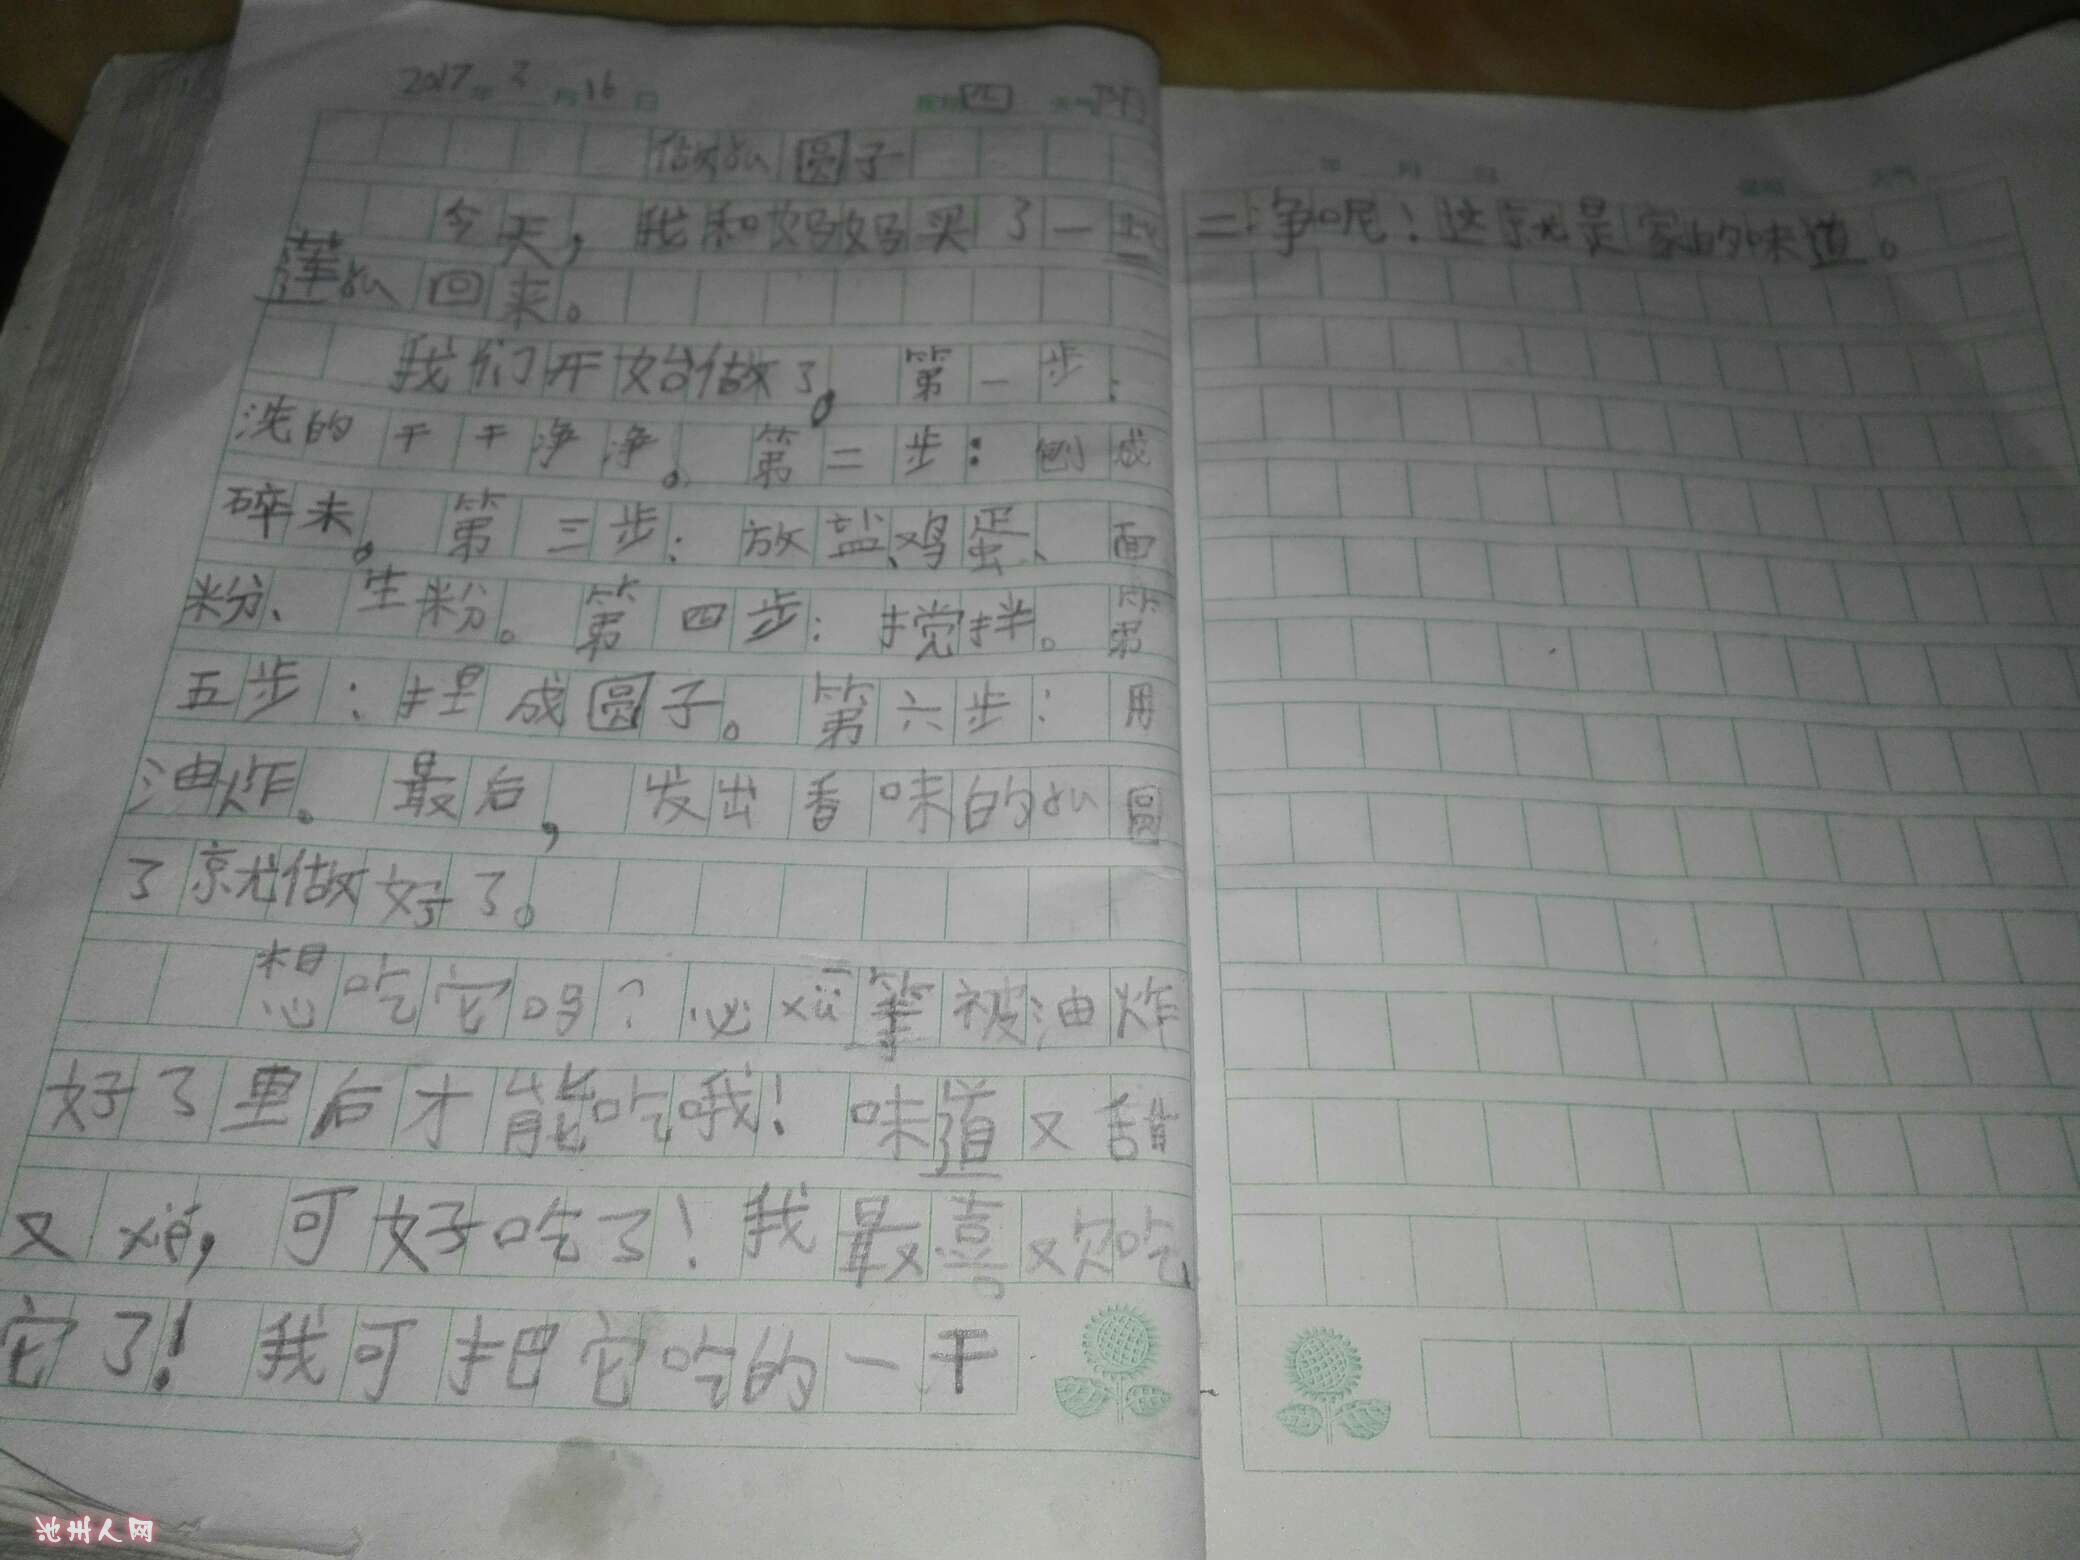 2017年3月16日 星期四 天气阴
做ǒu圆子
今天,我和妈妈买了一些
莲ǒu回来。
我们开始做了。第一步:
洗的干干净净。第二步:刨成
碎未。第三步:放盐、鸡蛋、面
粉、生粉。第四步:搅拌。第
五步:捏成圆子。第六步:用
油炸。最后,发出香味的ǒu圆
了就做好了。
想吃它吗?必xū等被油炸
好了里后才能吃哦!味道又甜
又xiē,可好吃了!我最喜欢吃
它了!我可把它吃的一干
年 月 日 星期 天气
二净呢!这就是家的味道。
池州人网